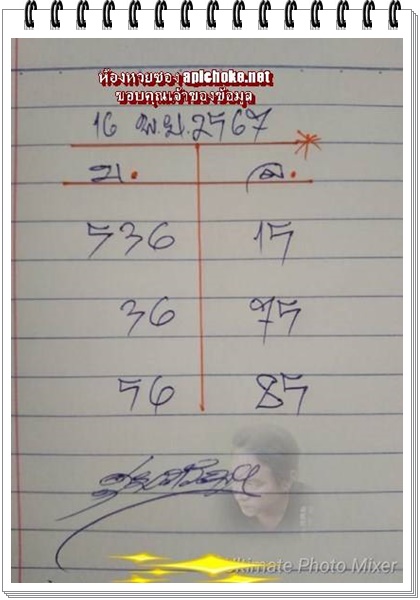 ห้องหวยซอง apichoke.net
ขอบคุณเจ้าของข้อมูล
16 พ.ย. 2567
บ. ล.
536 15
36 75
56 85
Ultimate Photo Mixer